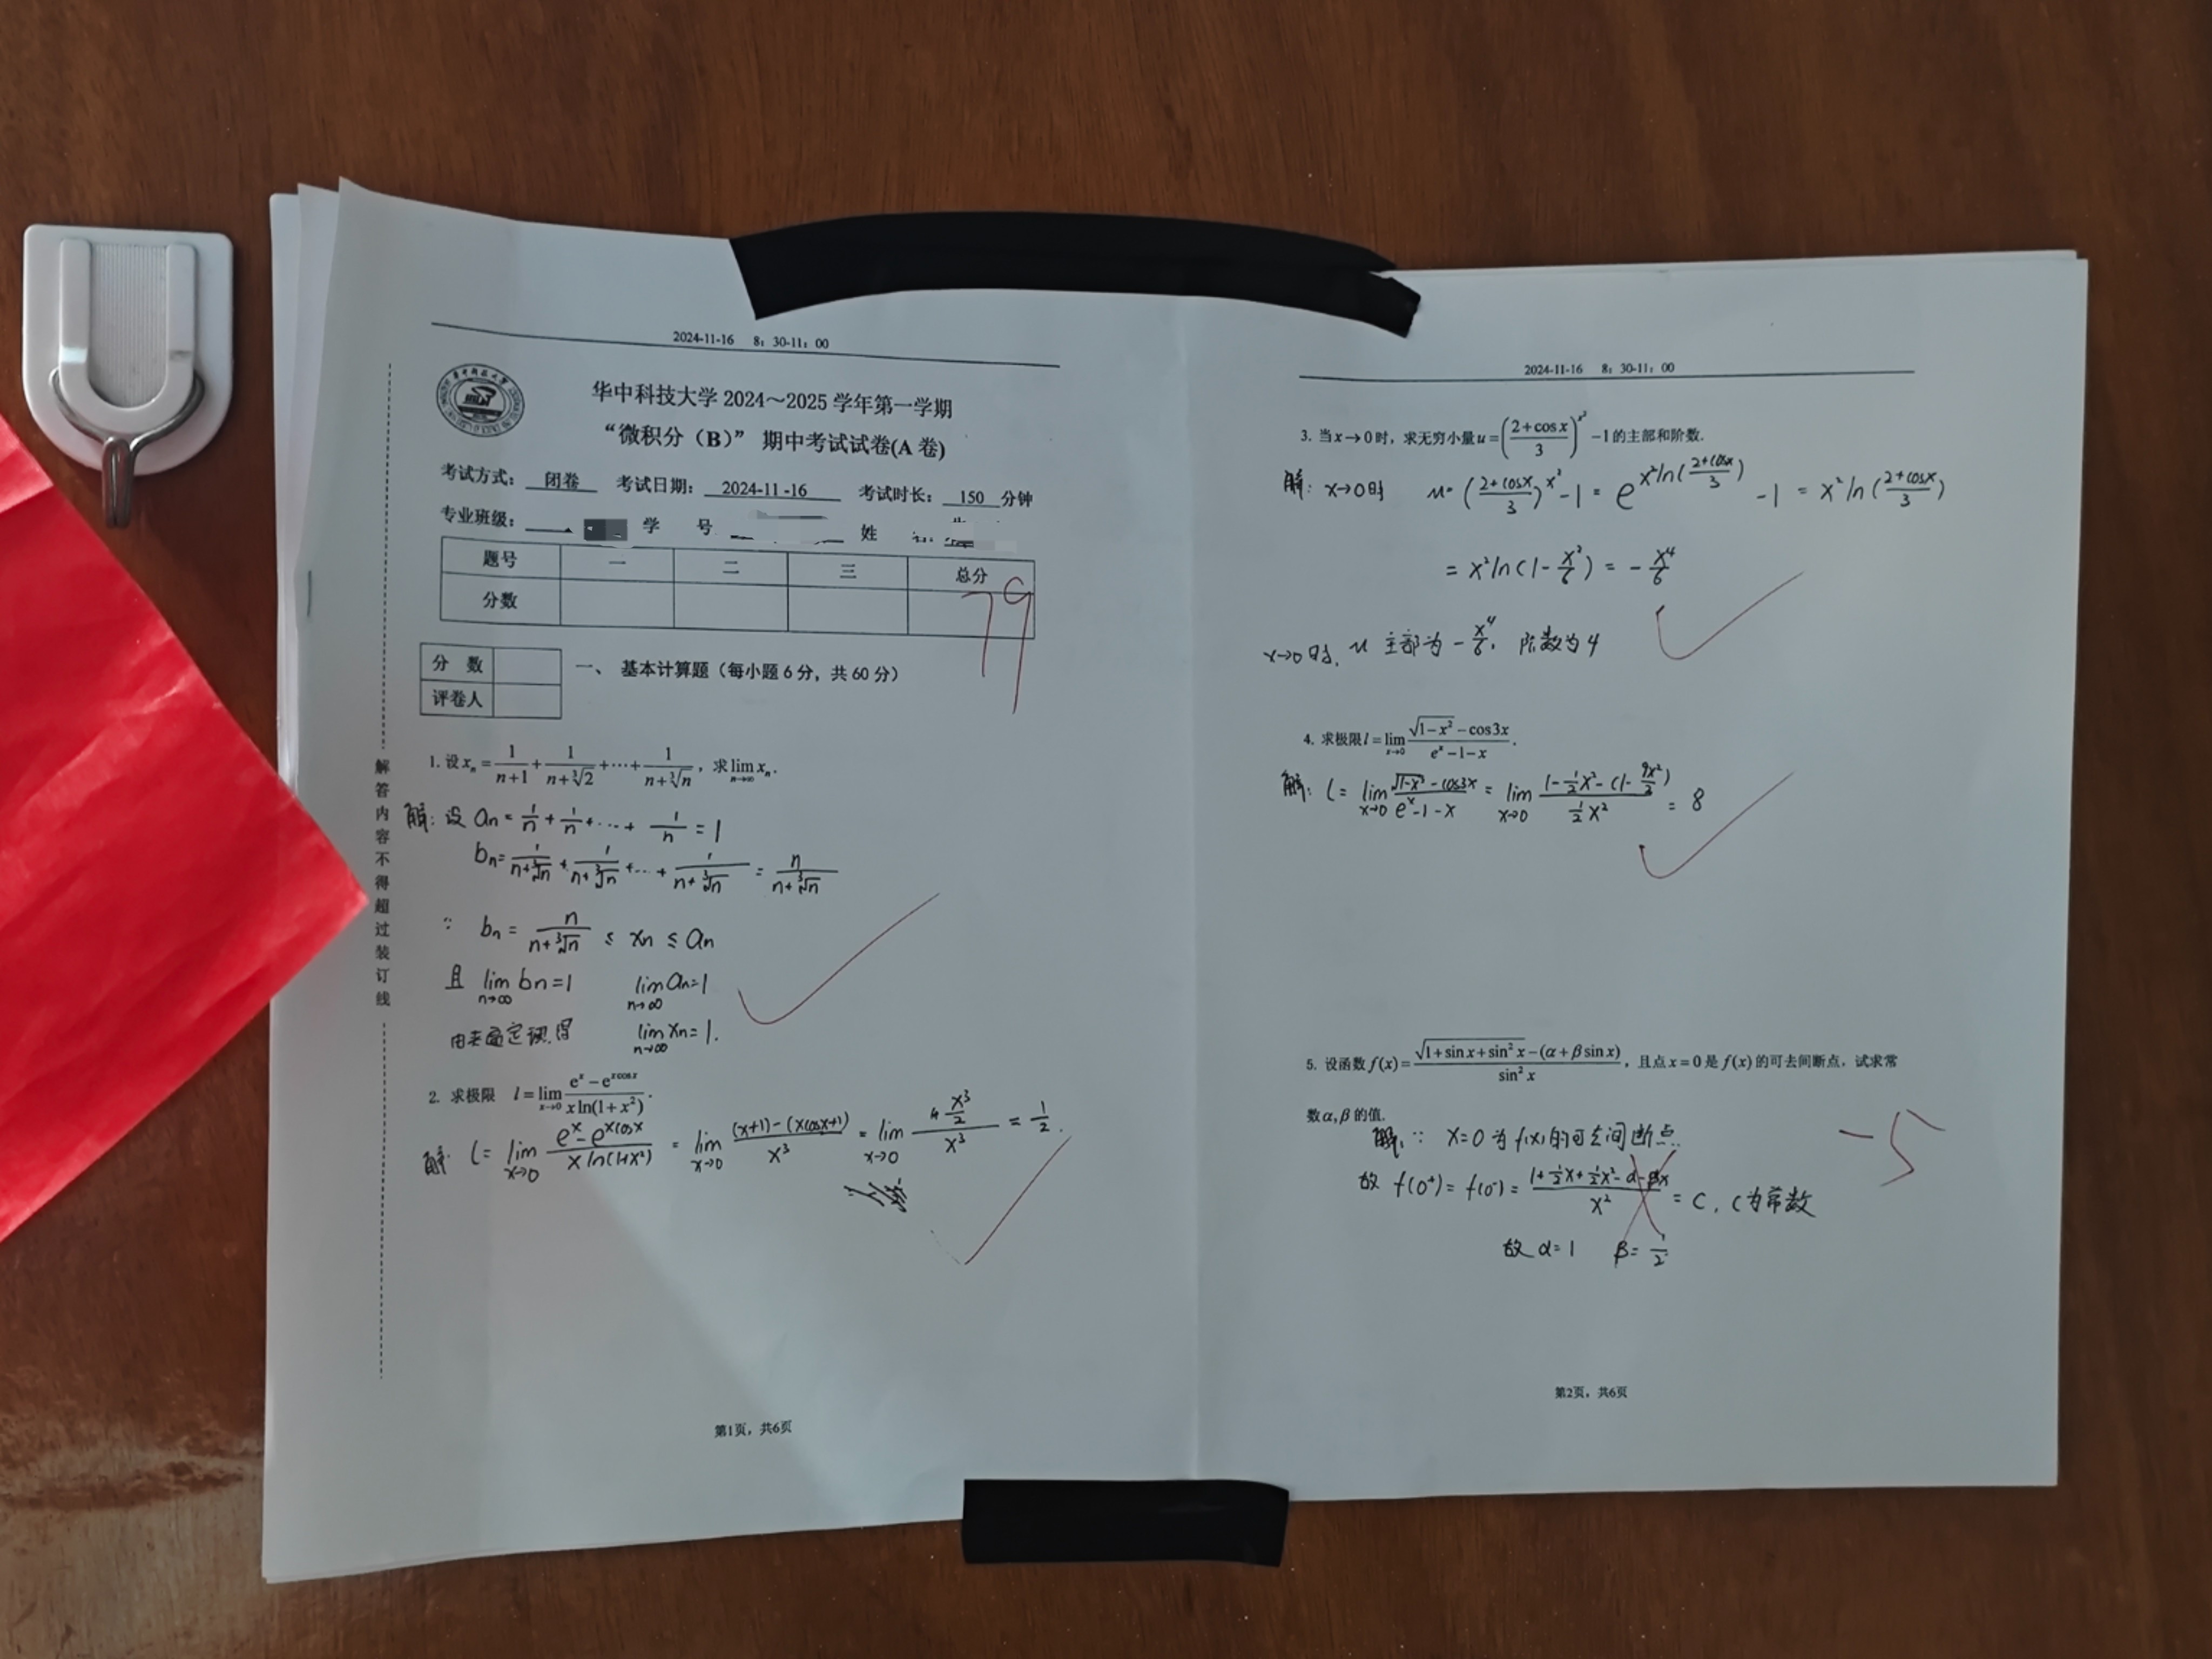 2024-11-16 8：30-11：00
华中科技大学 2024～2025 学年第一学期
“微积分（B）” 期中考试试卷(A 卷)
考试方式： 闭卷 考试日期： 2024-11-16 考试时长： 150 分钟
专业班级： 学 号 姓
题号 一 二 三 总分
分数 79
分 数
评卷人
一、 基本计算题（每小题 6 分，共 60 分）
解答内容不得超过装订线
1. 设 xₙ = 1/(n+1) + 1/(n+∛2) + ⋯ + 1/(n+∛n)，求 lim_{n→∞} xₙ.
解: 设 an = 1/n + 1/n + ⋯ + 1/n = 1
bn = 1/(n+∛n) + 1/(n+∛n) + ⋯ + 1/(n+∛n) = n/(n+∛n)
∵ bn = n/(n+∛n) ≤ xn ≤ an
且 lim_{n→∞} bn = 1 lim_{n→∞} an = 1
由夹逼定理,得 lim_{n→∞} xn = 1.
2. 求极限 l = lim_{x→0} (eˣ − e^{xcosx})/(x ln(1+x²)).
解: l = lim_{x→0} (eˣ − e^{xcosx})/(x ln(1+x²)) = lim_{x→0} ((x+1) − (xcosx+1))/x³ = lim_{x→0} (x³/2)/x³ = 1/2.
第1页，共6页
2024-11-16 8：30-11：00
3. 当 x→0 时，求无穷小量 u = ((2+cos x)/3)^{x²} −1 的主部和阶数.
解: x→0时 u = ((2+cosx)/3)^{x²} − 1 = e^{x²ln((2+cosx)/3)} − 1 = x² ln((2+cosx)/3)
= x² ln(1 − x²/6) = − x⁴/6
x→0时, u 主部为 − x⁴/6, 阶数为4
4. 求极限 l = lim_{x→0} (√(1−x²) − cos3x)/(eˣ −1−x).
解: l = lim_{x→0} (√(1−x²) − cos3x)/(eˣ−1−x) = lim_{x→0} (1 − ½x² − (1 − 9x²/2))/(½x²) = 8
5. 设函数 f(x) = (√(1+sin x+sin² x) − (α+β sin x))/sin² x，且点 x=0 是 f(x) 的可去间断点，试求常
数 α,β 的值.
−5
解: ∵ x=0 为 f(x) 的可去间断点.
故 f(0⁺) = f(0⁻) = (1+½x+½x²−α−βx)/x² = C, C为常数
故 α=1 β=1/2
第2页，共6页